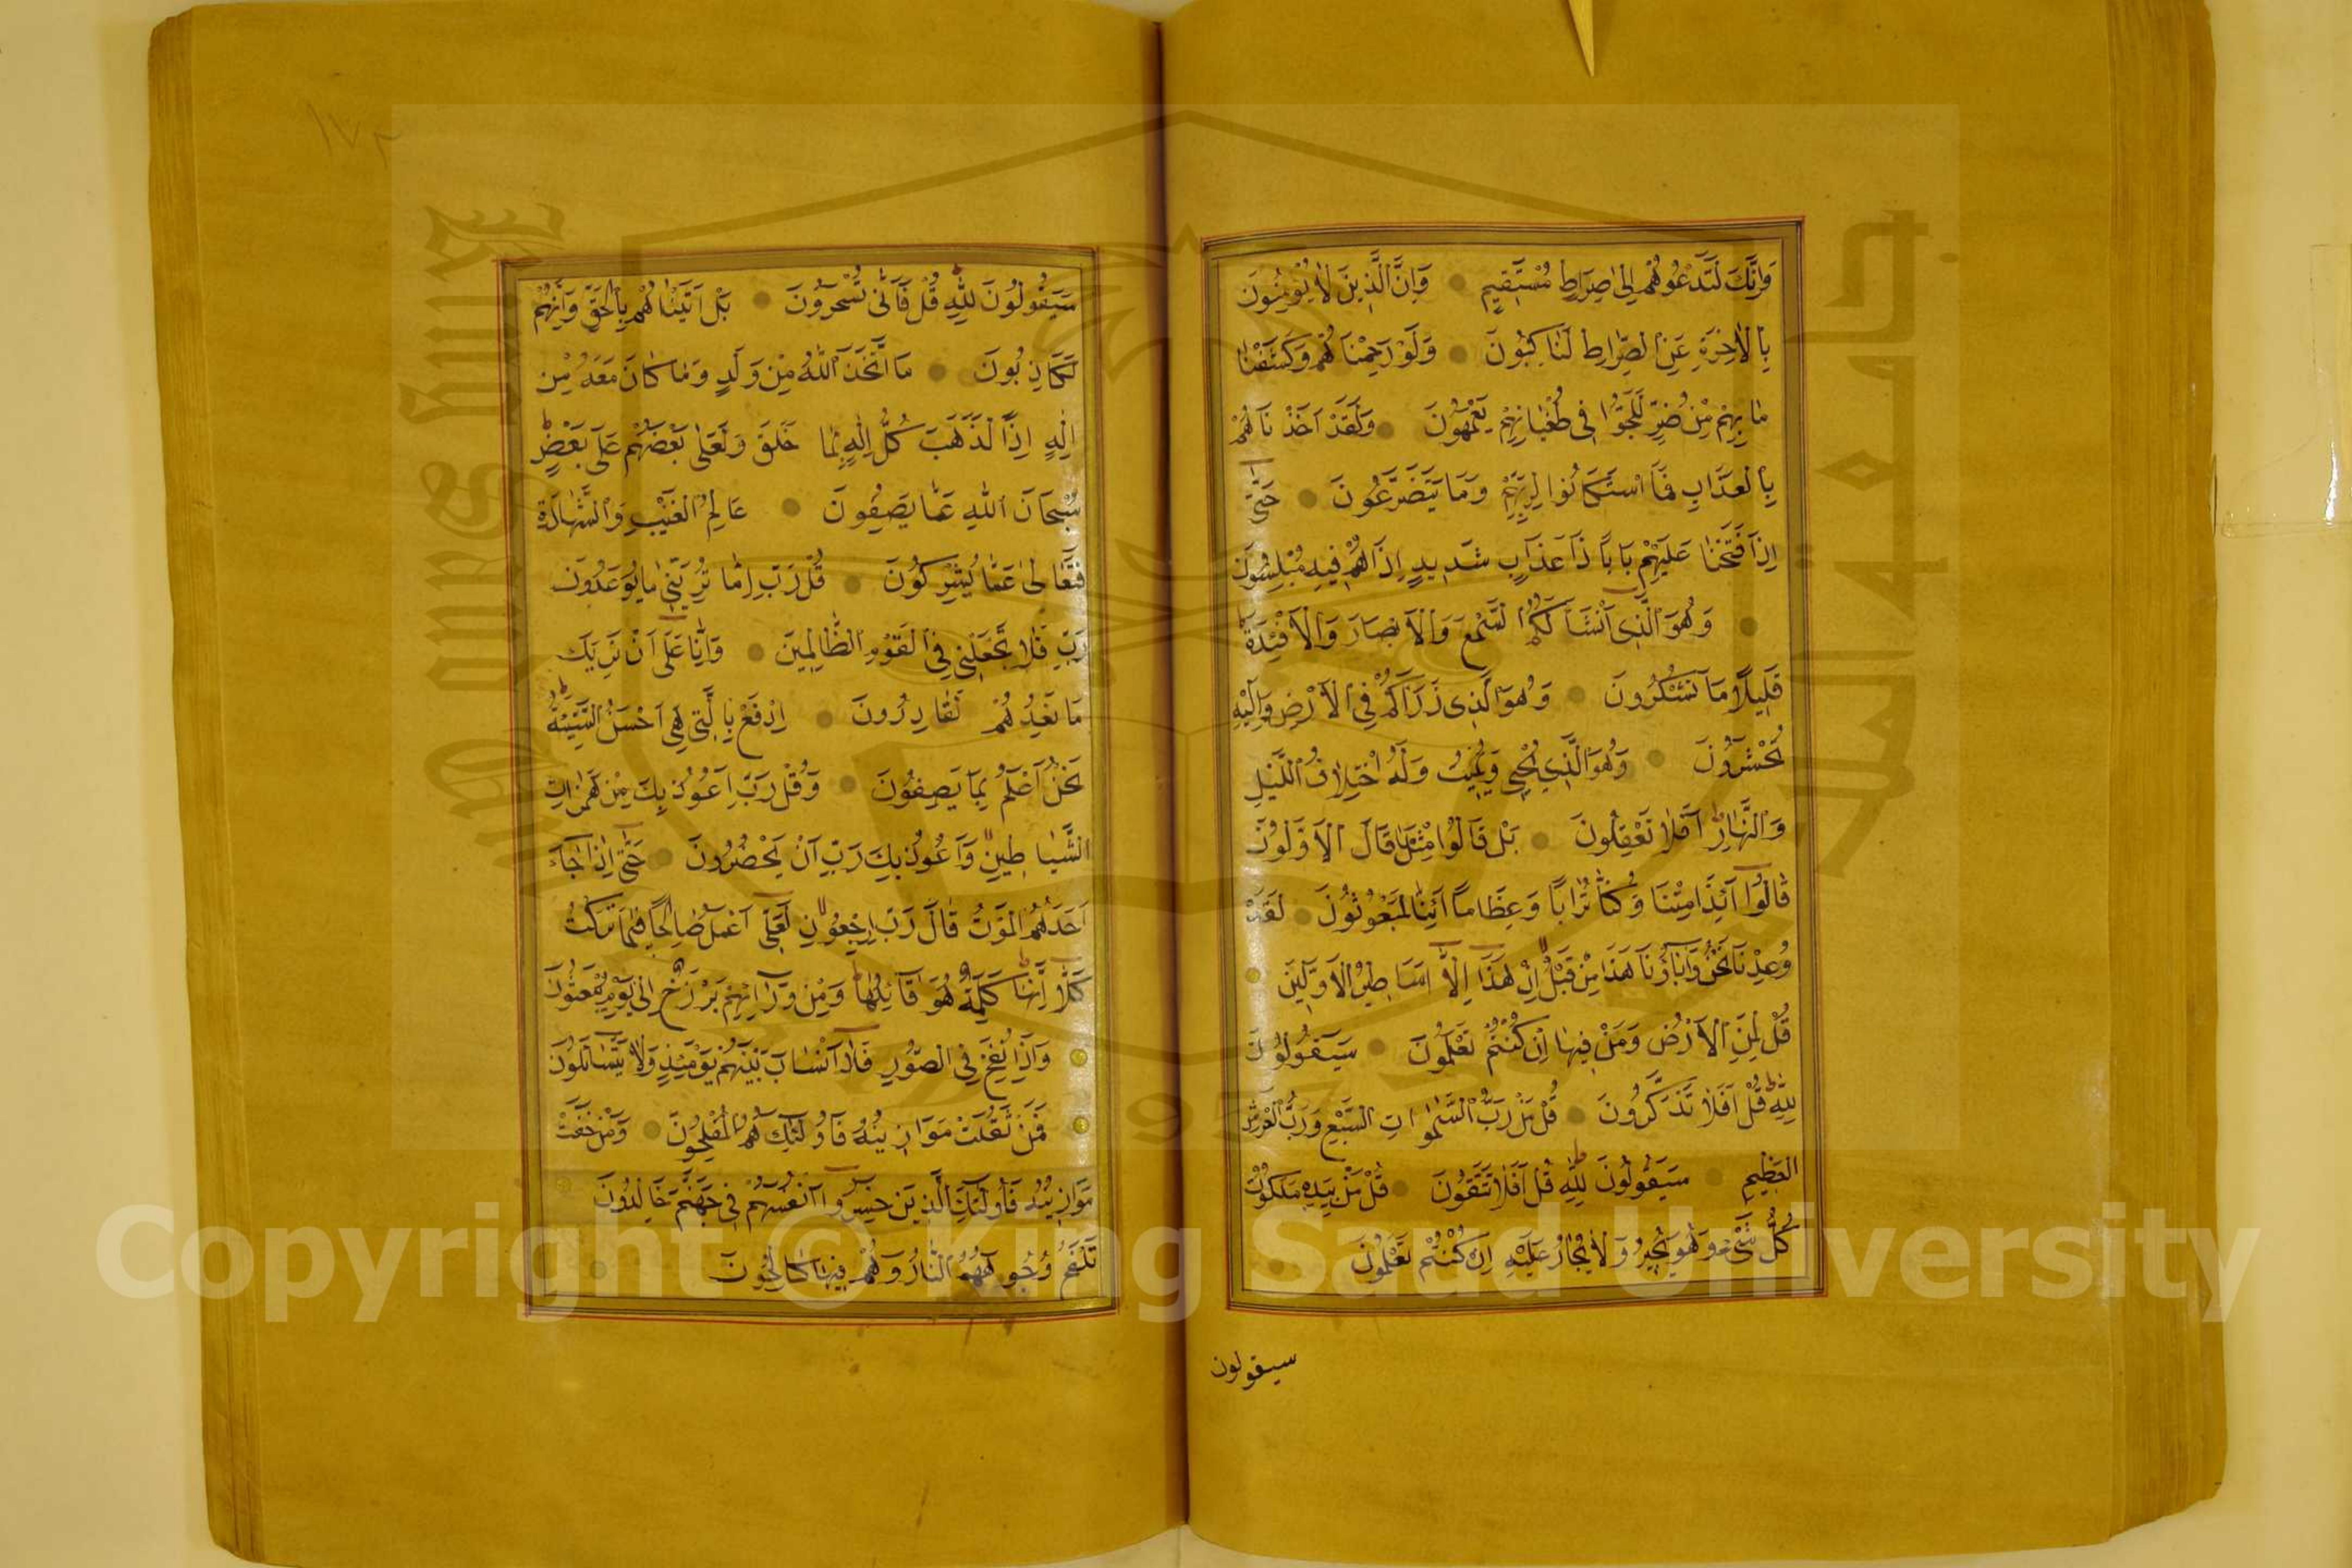 وَاِنَّكَ لَتَدْعُوهُمْ اِلىٰ صِرَاطٍ مُسْتَقِيمٍ وَاِنَّ الَّذِينَ لَا يُؤْمِنُونَ
بِالْاٰخِرَةِ عَنِ الصِّرَاطِ لَنَاكِبُونَ وَلَوْ رَحِمْنَاهُمْ وَكَشَفْنَا
مَا بِهِمْ مِنْ ضُرٍّ لَلَجُّوا فِى طُغْيَانِهِمْ يَعْمَهُونَ وَلَقَدْ اَخَذْنَاهُمْ
بِالْعَذَابِ فَمَا اسْتَكَانُوا لِرَبِّهِمْ وَمَا يَتَضَرَّعُونَ حَتّٰى
اِذَا فَتَحْنَا عَلَيْهِمْ بَابًا ذَا عَذَابٍ شَدِيدٍ اِذَا هُمْ فِيهِ مُبْلِسُونَ
وَهُوَ الَّذِى اَنْشَاَ لَكُمُ السَّمْعَ وَالْاَبْصَارَ وَالْاَفْئِدَةَ
قَلِيلًا مَا تَشْكُرُونَ وَهُوَ الَّذِى ذَرَاَكُمْ فِى الْاَرْضِ وَاِلَيْهِ
تُحْشَرُونَ وَهُوَ الَّذِي يُحْيِي وَيُمِيتُ وَلَهُ اخْتِلَافُ اللَّيْلِ
وَالنَّهَارِ اَفَلَا تَعْقِلُونَ بَلْ قَالُوا مِثْلَ مَا قَالَ الْاَوَّلُونَ
قَالُوا ءَاِذَا مِتْنَا وَكُنَّا تُرَابًا وَعِظَامًا ءَاِنَّا لَمَبْعُوثُونَ لَقَدْ
وُعِدْنَا نَحْنُ وَاٰبَاؤُنَا هَذَا مِنْ قَبْلُ اِنْ هٰذَا اِلَّا اَسَاطِيرُ الْاَوَّلِينَ
قُلْ لِمَنِ الْاَرْضُ وَمَنْ فِيهَا اِنْ كُنْتُمْ تَعْلَمُونَ سَيَقُولُونَ
لِلّٰهِ قُلْ اَفَلَا تَذَكَّرُونَ قُلْ مَنْ رَبُّ السَّمٰوَاتِ السَّبْعِ وَرَبُّ الْعَرْشِ
الْعَظِيمِ سَيَقُولُونَ لِلّٰهِ قُلْ اَفَلَا تَتَّقُونَ قُلْ مَنْ بِيَدِهِ مَلَكُوتُ
كُلِّ شَىْءٍ وَهُوَ يُجِيرُ وَلَا يُجَارُ عَلَيْهِ اِنْ كُنْتُمْ تَعْلَمُونَ
سيقولون
١٧٣
سَيَقُولُونَ لِلّٰهِ قُلْ فَاَنّٰى تُسْحَرُونَ بَلْ اَتَيْنَاهُمْ بِالْحَقِّ وَاِنَّهُمْ
لَكَاذِبُونَ مَا اتَّخَذَ اللّٰهُ مِنْ وَلَدٍ وَمَا كَانَ مَعَهُ مِنْ
اِلٰهٍ اِذًا لَذَهَبَ كُلُّ اِلٰهٍ بِمَا خَلَقَ وَلَعَلٰى بَعْضُهُمْ عَلٰى بَعْضٍ
سُبْحَانَ اللّٰهِ عَمَّا يَصِفُونَ عَالِمِ الْغَيْبِ وَالشَّهَادَةِ
فَتَعَالىٰ عَمَّا يُشْرِكُونَ قُلْ رَبِّ اِمَّا تُرِيَنِّى مَا يُوعَدُونَ
رَبِّ فَلَا تَجْعَلْنِى فِى الْقَوْمِ الظَّالِمِينَ وَاِنَّا عَلٰى اَنْ نُرِيَكَ
مَا نَعِدُهُمْ لَقَادِرُونَ اِدْفَعْ بِالَّتِى هِىَ اَحْسَنُ السَّيِّئَةَ
نَحْنُ اَعْلَمُ بِمَا يَصِفُونَ وَقُلْ رَبِّ اَعُوذُ بِكَ مِنْ هَمَزَاتِ
الشَّيَاطِينِ وَاَعُوذُ بِكَ رَبِّ اَنْ يَحْضُرُونَ حَتّٰى اِذَا جَاءَ
اَحَدَهُمُ الْمَوْتُ قَالَ رَبِّ ارْجِعُونِ لَعَلِّى اَعْمَلُ صَالِحًا فِيمَا تَرَكْتُ
كَلَّا اِنَّهَا كَلِمَةٌ هُوَ قَائِلُهَا وَمِنْ وَرَائِهِمْ بَرْزَخٌ اِلىٰ يَوْمِ يُبْعَثُونَ
فَاِذَا نُفِخَ فِى الصُّورِ فَلَا اَنْسَابَ بَيْنَهُمْ يَوْمَئِذٍ وَلَا يَتَسَاءَلُونَ
فَمَنْ ثَقُلَتْ مَوَازِينُهُ فَاُولٰئِكَ هُمُ الْمُفْلِحُونَ وَمَنْ خَفَّتْ
مَوَازِينُهُ فَاُولٰئِكَ الَّذِينَ خَسِرُوا اَنْفُسَهُمْ فِى جَهَنَّمَ خَالِدُونَ
تَلْفَحُ وُجُوهَهُمُ النَّارُ وَهُمْ فِيهَا كَالِحُونَ
Copyright © King Saud University